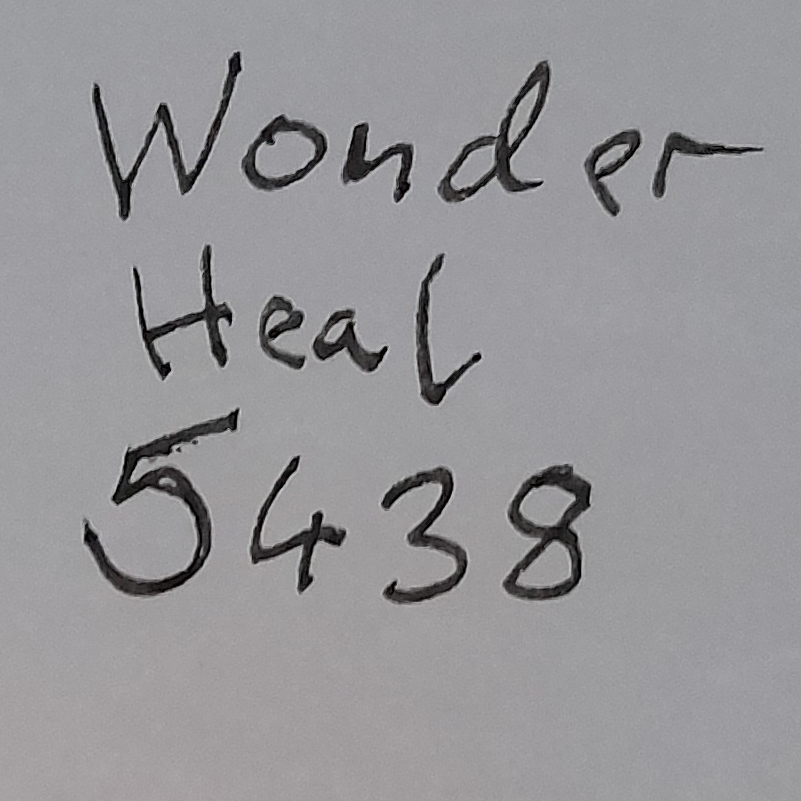 Wonder
Heal
5438